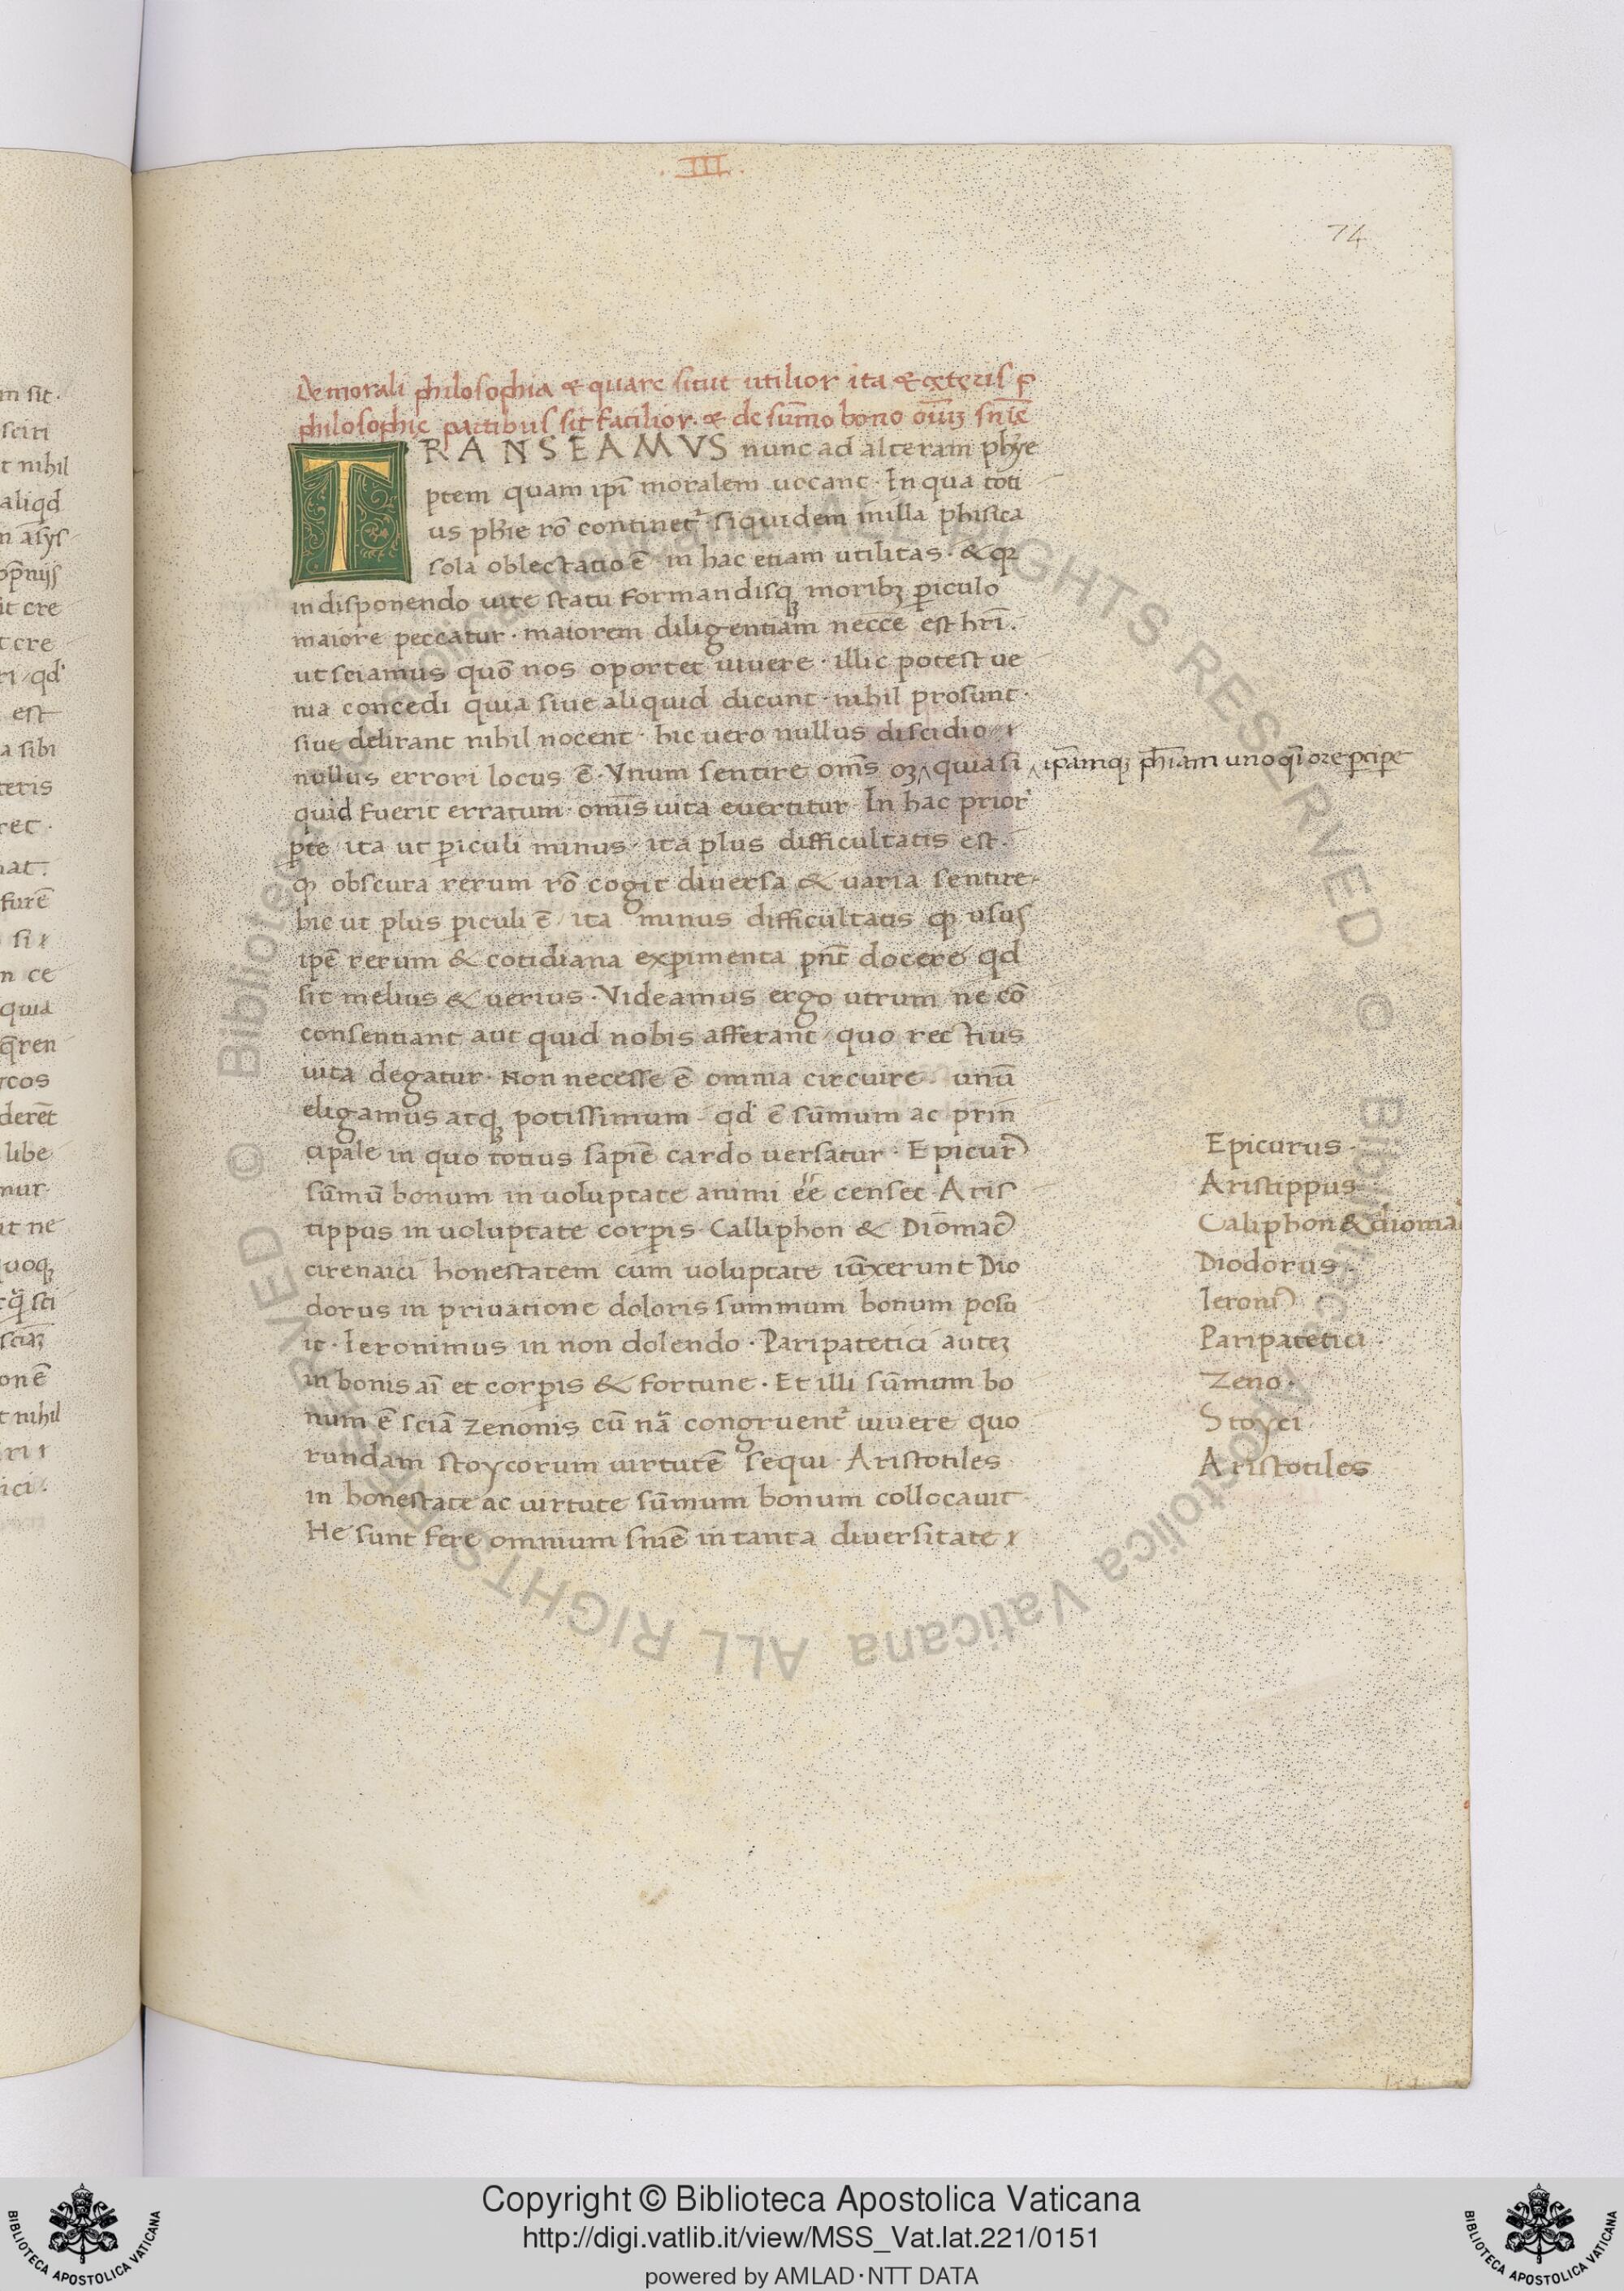 .III.
74
De morali philosophia & quare sicut utilior ita & cęteris p̱
philosophię partibus sit facilior. & de sūmo bono oīuꝫ sniē
TRANSEAMVS nunc ad alteram phye
ptem quam ipī moralem uocant · In qua toti
us phīe rō continet᷑ · siquidem in illa phisica
sola oblectatio ē · in hac etiam utilitas · & qꝛ
in disponendo uite statu formandisqꝫ moribꝫ ꝑiculo
maiore peccatur · maiorem diligentiam necce est hr̄i.
ut sciamus quō nos oportet uiuere · illic potest ue
nia concedi quia siue aliquid dicunt · nihil prosunt ·
siue delirant nihil nocent · hic uero nullus discidio ı
nullus errori locus ē · Vnum sentire omīs oꝫ ‸ quia si ‸ ipāmqꝫ phīam uno qī ore ꝑcipe
quid fuerit erratum · omīs uita euertitur In hac prior᷑
ꝑte / ita ut ꝑiculi minus / ita plus difficultatis est ·
ꝙ obscura rerum rō cogit diuersa & uaria sentire
hic ut plus ꝑiculi ē / ita minus difficultatis ꝙ usus
ipē rerum & cotidiana exꝑimenta pn̄t docere qd
sit melius & uerius · Videamus ergo utrum ne eō
consentiant aut quid nobis afferant / quo rectius
uita degatur · Non necesse ē omnia circuire · unū
eligamus atqꝫ potissimum qd' ē sūmum ac prin
cipale in quo totius sapiē cardo uersatur · Epicurꝰ
sūmū bonum in uoluptate animi eē censet · Aris
tippus in uoluptate corꝑis · Calliphon & Diōmacꝰ
cirenaici honestatem cum uoluptate iūxerunt Dio
dorus in priuatione doloris summum bonum posu
it · Ieronimus in non dolendo · Paripatetici auteꝫ
in bonis aī et corꝑis & fortune · Et illi sūmum bo
num ē sciā zenonis cū nā congruent᷑ uiuere quo
rundam stoycorum uirtutē sequi · Aristotiles
in honestate ac uirtute sūmum bonum collocauit
He sunt fere omnium sniē in tanta diuersitate ı
Epicurus ·
Aristippus
Caliphon & dioma
Diodorus ·
Ieronīꝰ
Paripatetici
Zeno ·
Stoyci
Aristotiles
Copyright © Biblioteca Apostolica Vaticana
http://digi.vatlib.it/view/MSS_Vat.lat.221/0151
powered by AMLAD·NTT DATA
BIBLIOTECA APOSTOLICA VATICANA
BIBLIOTECA APOSTOLICA VATICANA
© Biblioteca Apostolica Vaticana ALL RIGHTS RESERVED © Biblioteca Apostolica Vaticana ALL RIGHTS RESERVED